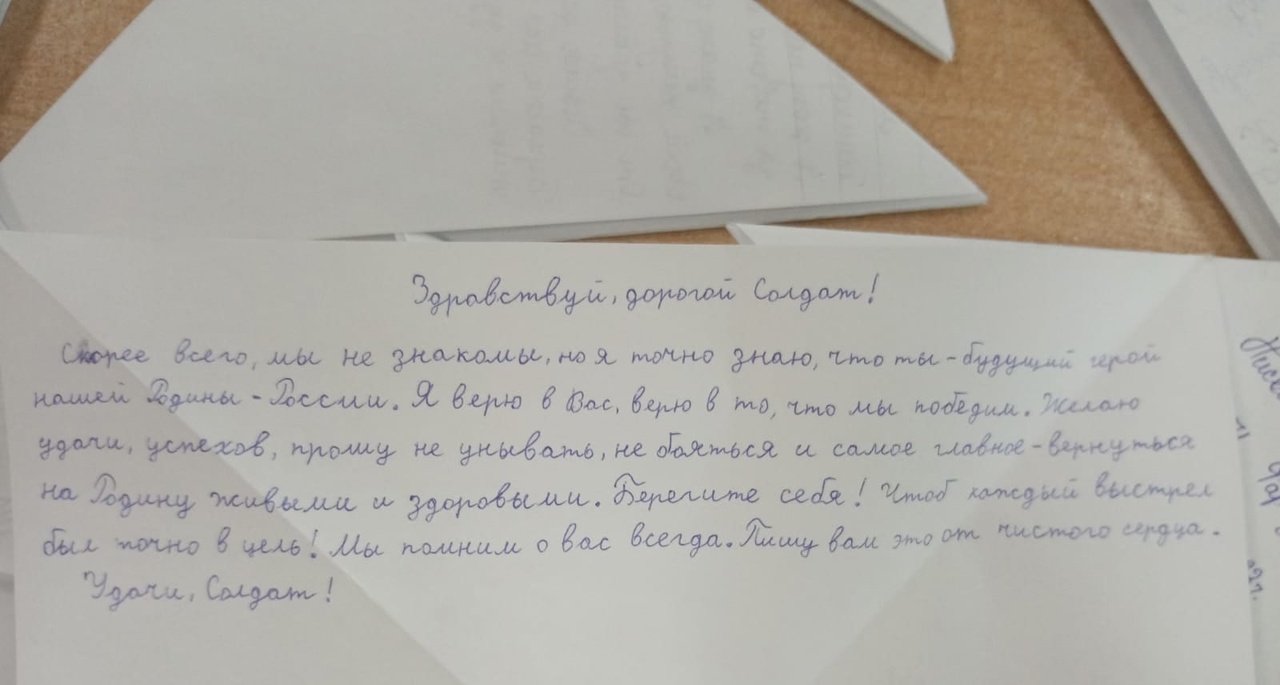 Здравствуй, дорогой Солдат!
Скорее всего, мы не знакомы, но я точно знаю, что ты - будущий герой
нашей Родины - России. Я верю в Вас, верю в то, что мы победим. Желаю
удачи, успехов, прошу не унывать, не бояться и самое главное - вернуться
на Родину живыми и здоровыми. Берегите себя! Чтоб каждый выстрел
был точно в цель! Мы помним о вас всегда. Пишу вам это от чистого сердца.
Удачи, Солдат!